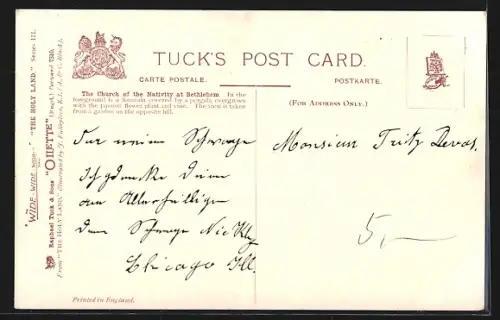 TUCK'S POST CARD.
CARTE POSTALE. POSTKARTE.
The Church of the Nativity at Bethlehem. In the
foreground is a fountain covered by a pergola overgrown
with the passion flower plant and vine. The view is taken
from a garden on the opposite hill.
(FOR ADDRESS ONLY.)
Für meine Schwager
Ich gedenke Deiner
an Allerheiligen
Dein Schwager Nic
Chicago Ill.
Monsieur Fritz Devas.
5,—
Printed in England.
"WIDE-WIDE-WORLD" "THE HOLY LAND." Series III.
Raphael Tuck & Sons' "OILETTE" [Regd.] Postcard 7310.
From "THE HOLY LAND," illustrated by J. Fulleylove, R.I. (A. & C. Black).